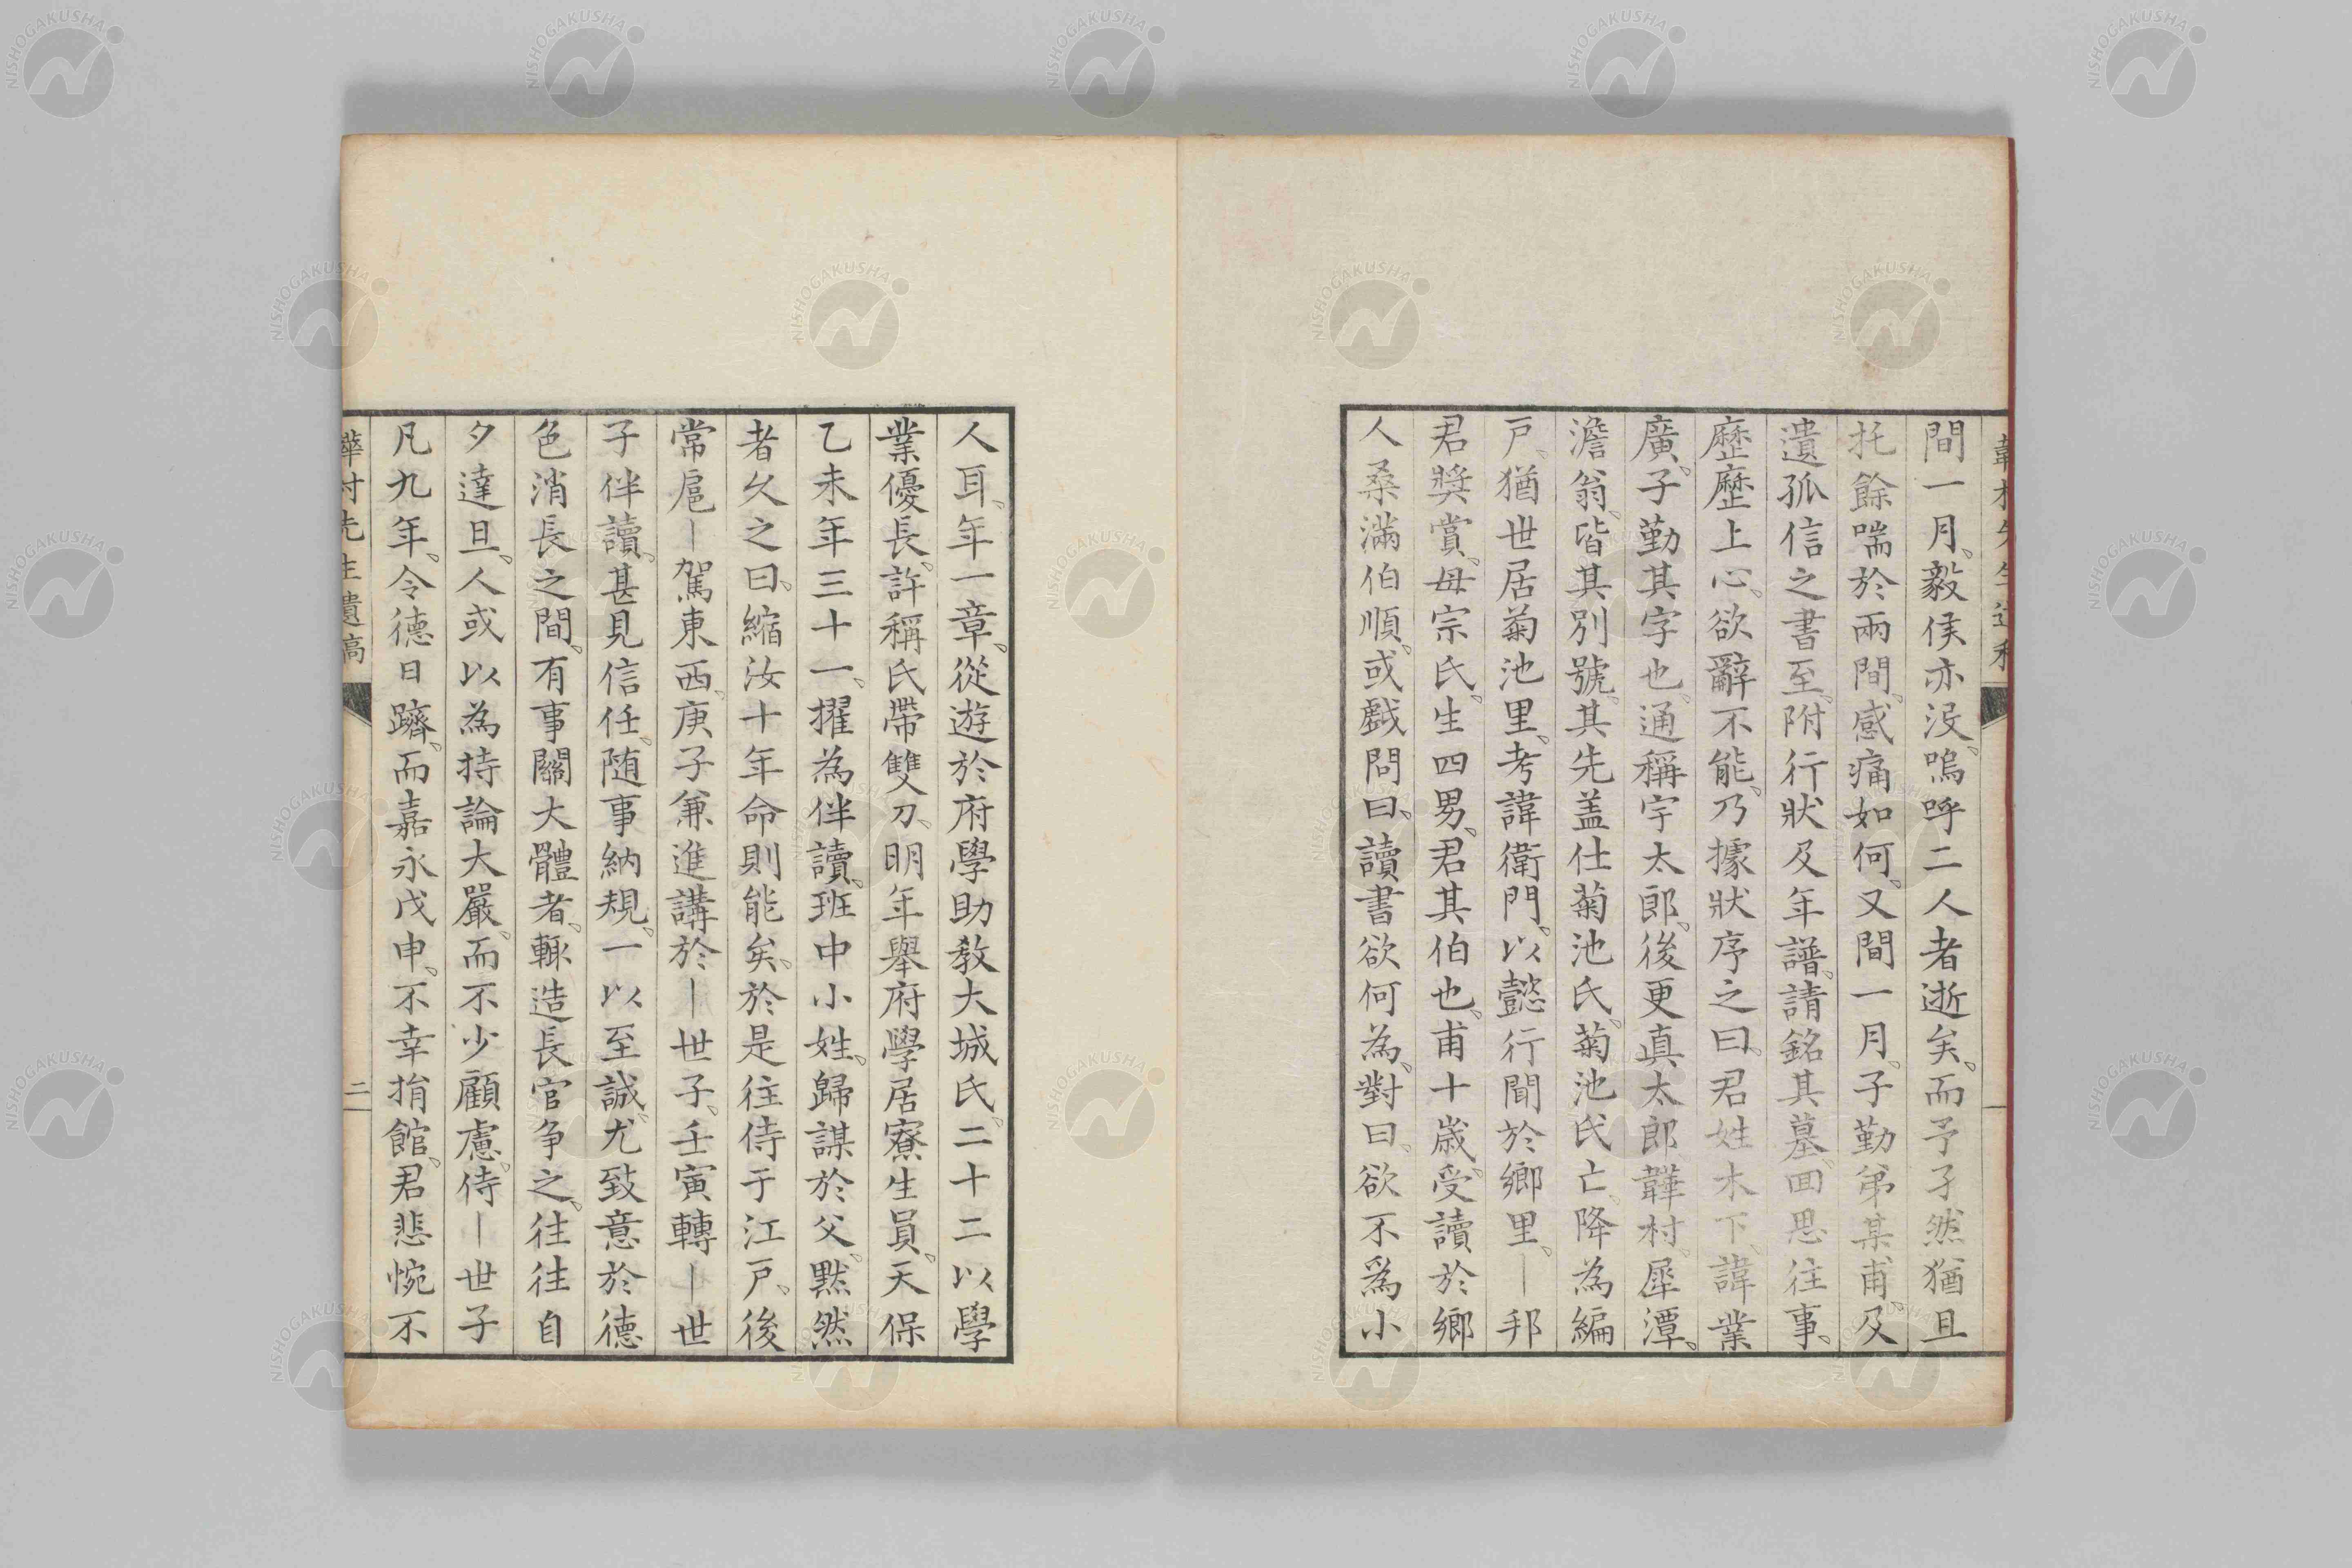 間一月、毅侯亦沒、嗚呼二人者逝矣、而予孑然猶且
托餘喘於兩間、感痛如何、又間一月、子勤弟某甫、及
遺孤信之書至、附行狀及年譜、請銘其墓、回思往事、
歷歷上心、欲辭不能、乃據狀序之曰、君姓木下、諱業
廣、子勤其字也、通稱宇太郎、後更真太郎、韡村、犀潭、
澹翁、皆其別號、其先盖仕菊池氏、菊池氏亡、降為編
戸、猶世居菊池里、考諱衛門、以懿行聞於鄉里、︱邦
君獎賞、母宗氏、生四男、君其伯也、甫十歲、受讀於鄉
人桑滿伯順、或戲問曰、讀書欲何為、對曰、欲不爲小
人耳、年一章、從遊於府學助教大城氏、二十二以學
業優長、許稱氏帶雙刀、明年舉府學居寮生員、天保
乙未年三十一、擢為伴讀、班中小姓、歸謀於父、默然
者久之曰、縮汝十年命則能矣、於是往侍于江戸、後
常扈︱駕東西、庚子兼進講於︱世子、壬寅轉︱世
子伴讀、甚見信任、随事納規、一以至誠、尤致意於德
色消長之間、有事關大體者、輙造長官争之、往往自
夕達旦、人或以為持論大嚴、而不少顧慮、侍︱世子
凡九年、令德日躋、而嘉永戊申、不幸捐館、君悲惋不
韡村先生遺稿
二
NISHOGAKUSHA